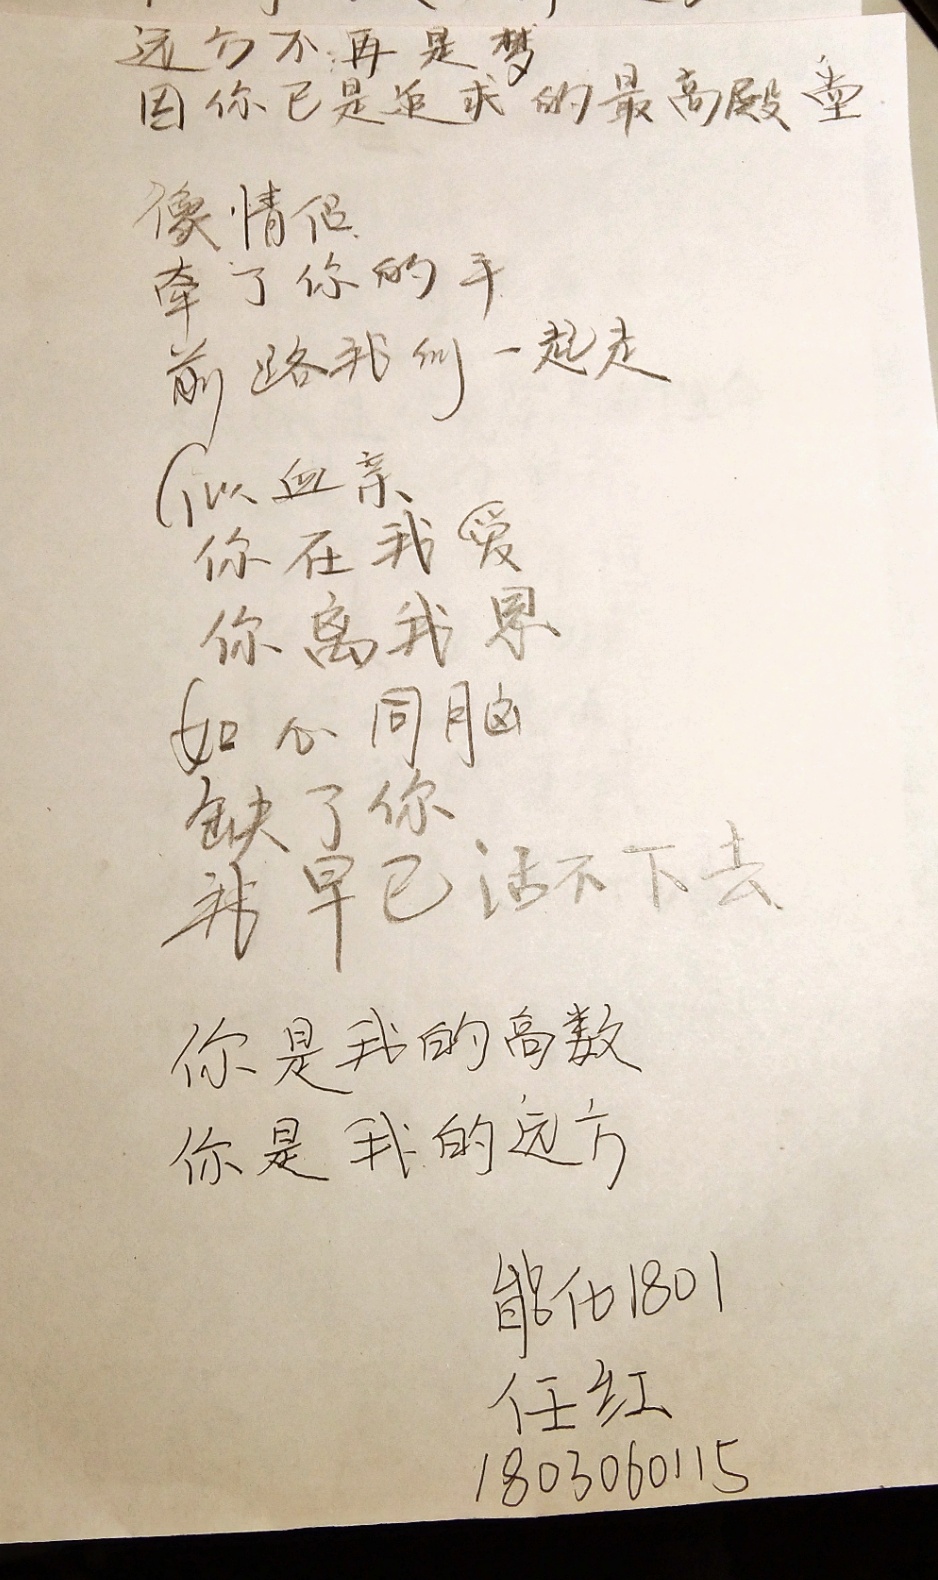 远方不再是梦
因你已是追求的最高殿堂
像情侣
牵了你的手
前路我们一起走
似血亲
你在我爱
你离我累
如心同脑
缺了你
我早已活不下去
你是我的高数
你是我的远方
能化1801
任红
1803060115